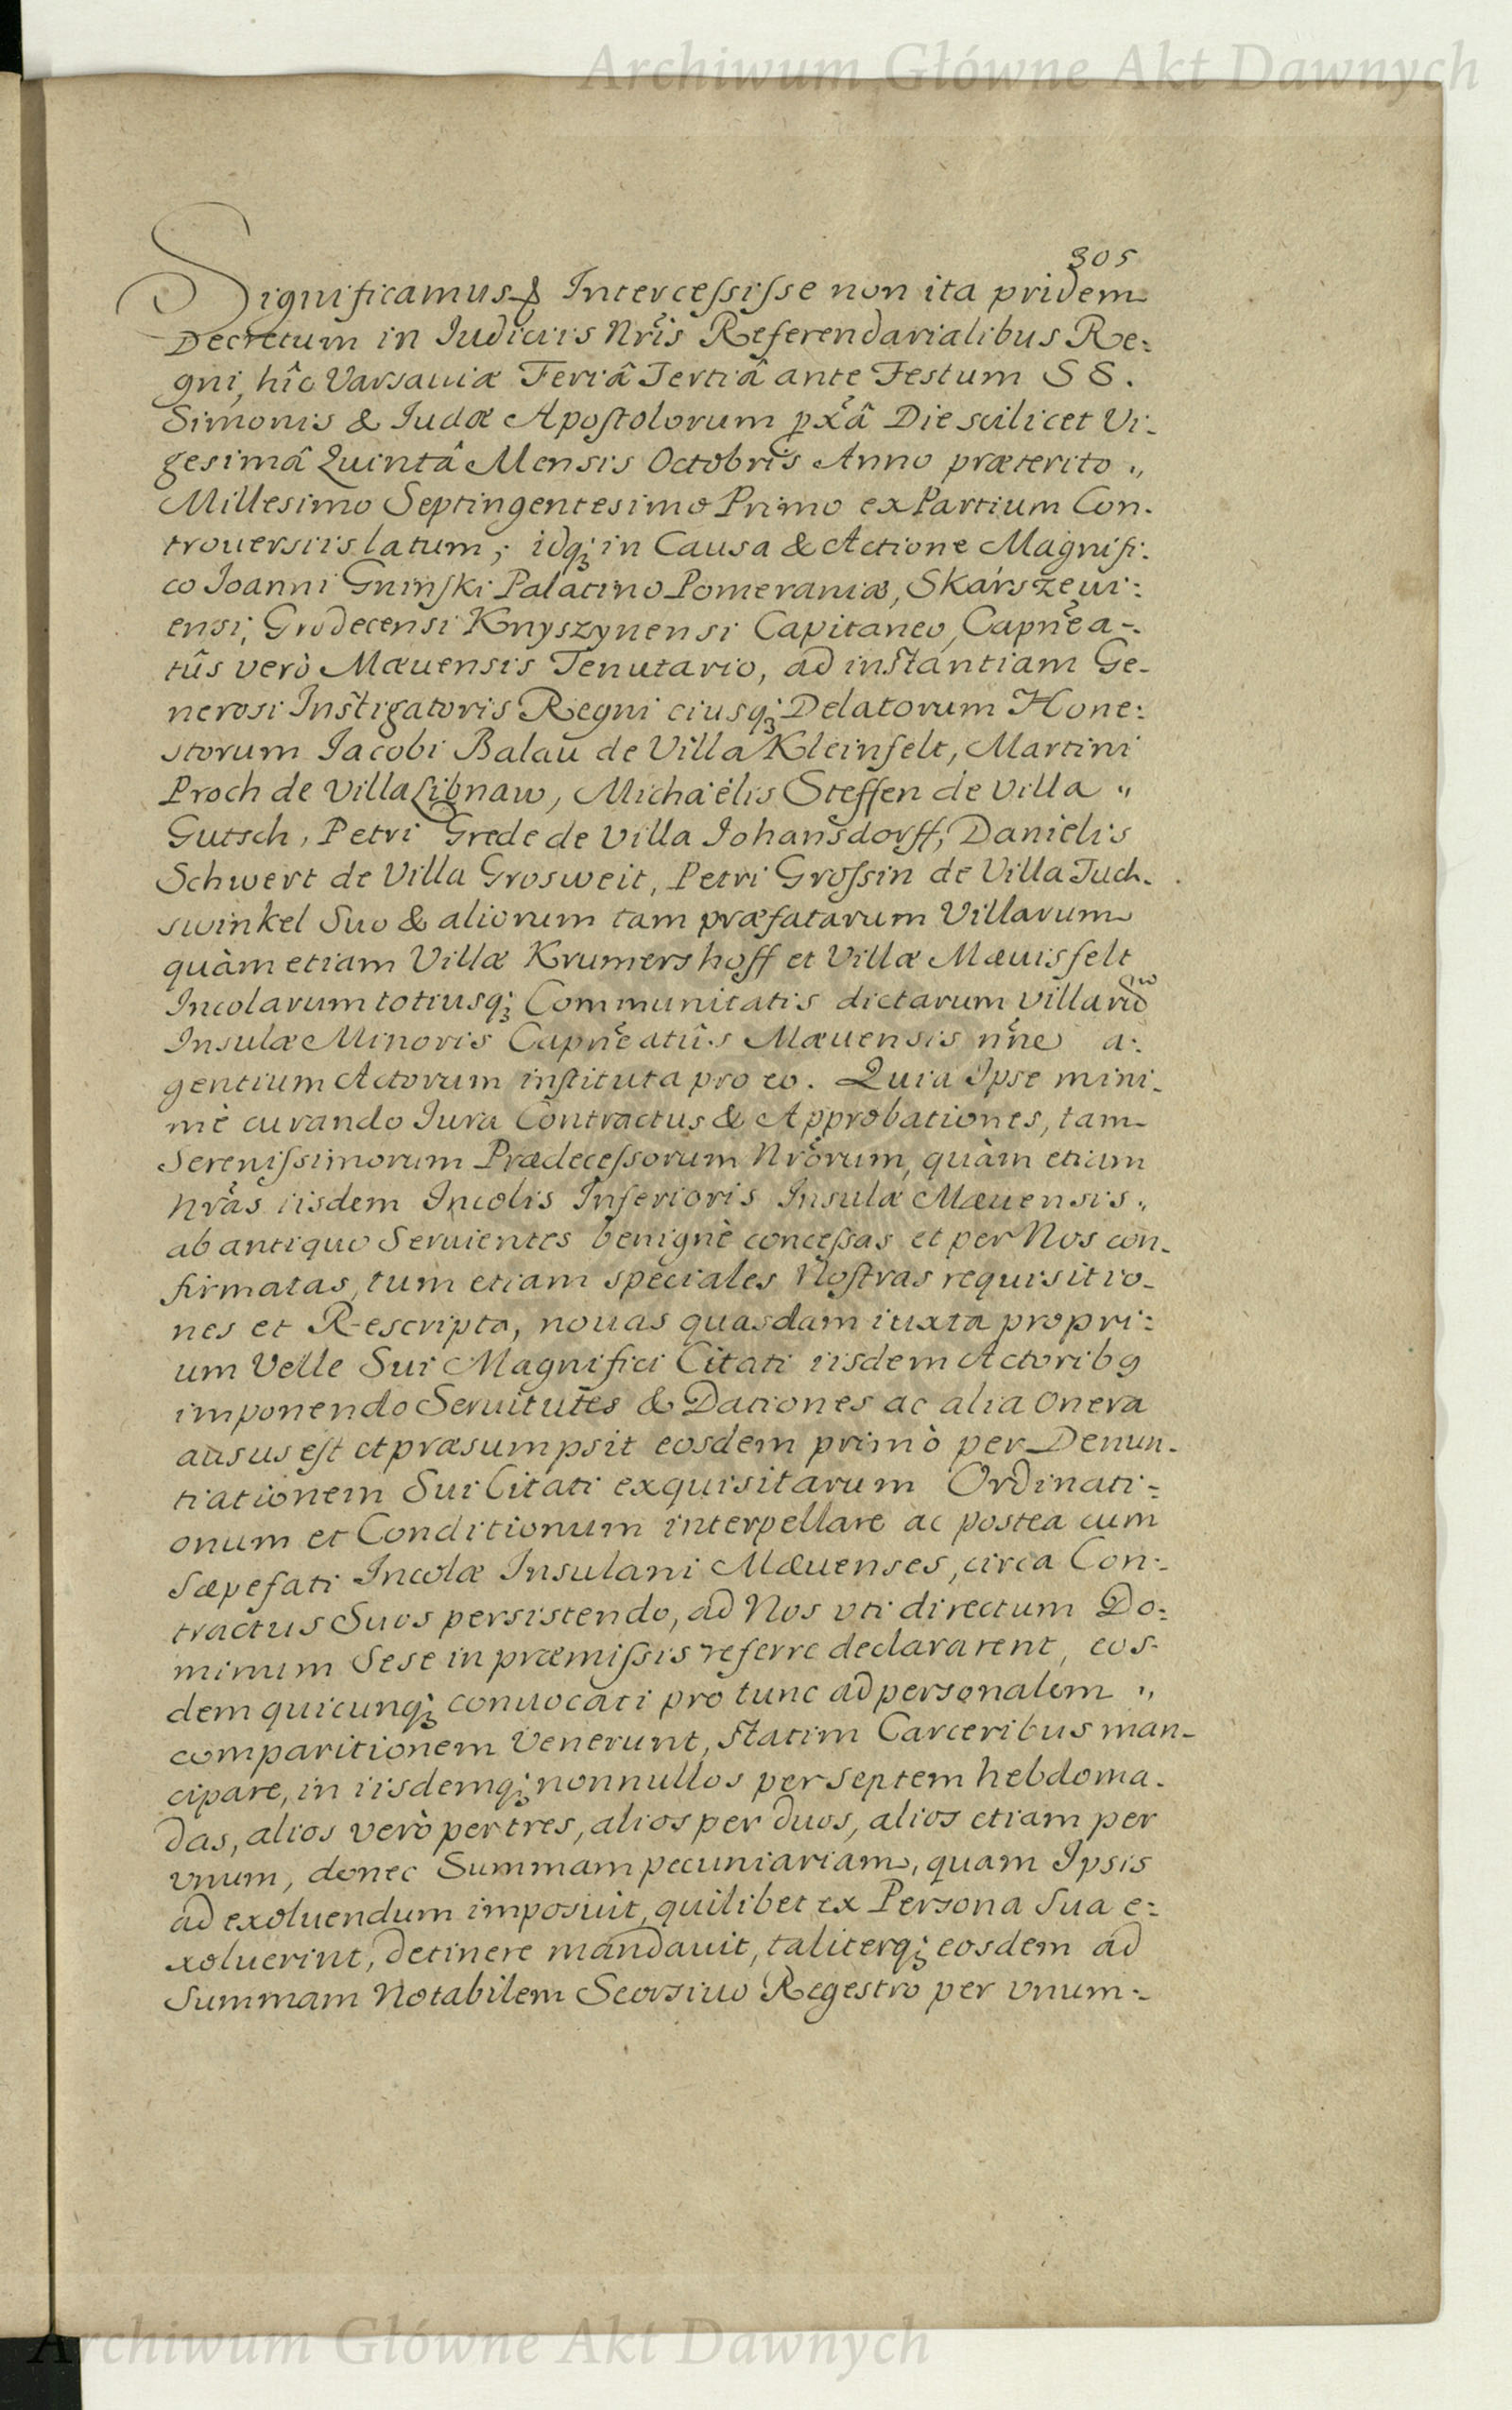 Archiwum Główne Akt Dawnych
305
Significamus & Intercessisse non ita pridem
Decretum in Iudiciis Nris Referendarialibus Re:
gni, hîc Varsaviæ Feriâ Tertiâ ante Festum S S.
Simonis & Iudæ Apostolorum pxâ Die scilicet Vi-
gesimâ Quintâ Mensis Octobris Anno præterito „
Millesimo Septingentesimo Primo ex Partium Con-
trouersiis latum; idq; in Causa & Actione Magnifi-
co Ioanni Gninski Palatino Pomeraniæ, Skarszewi:
ensi, Grodecensi Knyszynensi Capitaneo, Capnea-
tûs verò Mæuensis Tenutario, ad instantiam Ge-
nerosi Instigatoris Regni eiusq; Delatorum Hone:
storum Iacobi Balau de Villa Kleinfelt, Martini
Proch de Villa Libnaw, Michaëlis Steffen de Villa „
Gutsch, Petri Grede de Villa Iohansdorff, Danielis
Schwert de Villa Grosweit, Petri Grossin de Villa Tuch-
swinkel Suo & aliorum tam præfatarum Villarum
quàm etiam Villæ Krumershoff et Villæ Mæuisfelt
Incolarum totiusq; Communitatis dictarum villaru
Insulæ Minoris Capneatûs Mæuensis nne a:
gentium Actorum instituta pro eo. Quia Ipse mini-
mè curando Iura Contractus & Approbationes, tam
Serenissimorum Prædecessorum Nrorum, quàm etiam
Nras iisdem Incolis Inferioris Insulæ Mæuensis „
ab antiquo Seruientes benignè concessas et per Nos con-
firmatas, tum etiam speciales Nostras requisitio-
nes et Rescripta, nouas quasdam iuxta propri:
um Velle Sui Magnifici Citati iisdem Actorib9
imponendo Seruitutes & Dationes ac alia Onera
ausus est et præsumpsit eosdem primò per Denun-
tiationem Sui Citati exquisitarum Ordinati:
onum et Conditionum interpellare ac postea cum
Sæpefati Incolæ Insulani Mæuenses, circa Con:
tractus Suos persistendo, ad Nos vti directum Do:
minum Sese in præmissis referre declararent, eos-
dem quicunq; conuocati pro tunc ad personalem „
comparitionem Venerunt, statim Carceribus man-
cipare, in iisdemq; nonnullos per septem hebdoma-
das, alios verò per tres, alios per duos, alios etiam per
vnum, donec Summam pecuniariam, quam Ipsis
ad exoluendum imposuit, quilibet ex Persona Sua e:
xoluerint, detinere mandauit, taliterq; eosdem ad
Summam Notabilem Seorsiuo Regestro per vnum-
Archiwum Główne Akt Dawnych